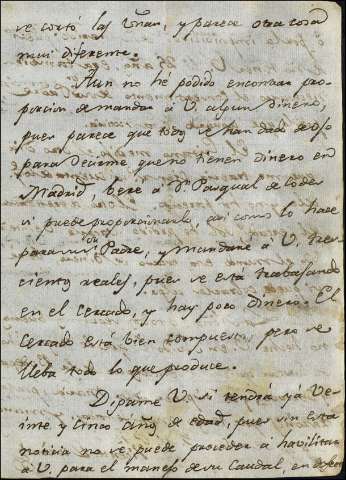 se cortó las Vñas, y parece otra cosa
mui diferente.
Aun no hé podido encontrar pro-
porcion de mandar à V. algun Dinero,
pues parece que todos se han dado de ojo
para decirme que no tienen dinero en
Madrid, vere a Dn. Pasqual de
si puede proporcionarlo, asi como lo hace
para su Padre, y mandaré a V. tres-
cientos reales, pues se está trabajando
en el Cercado, y hay poco dinero. El
Cercado está bien compuesto, pero se
lleba todo lo que produce.
Digame V. si tendrá yá Ve-
inte y cinco años de edad, pues sin esta
noticia no se puede proceder à havilitar
à V. para el manejo de su Caudal, en